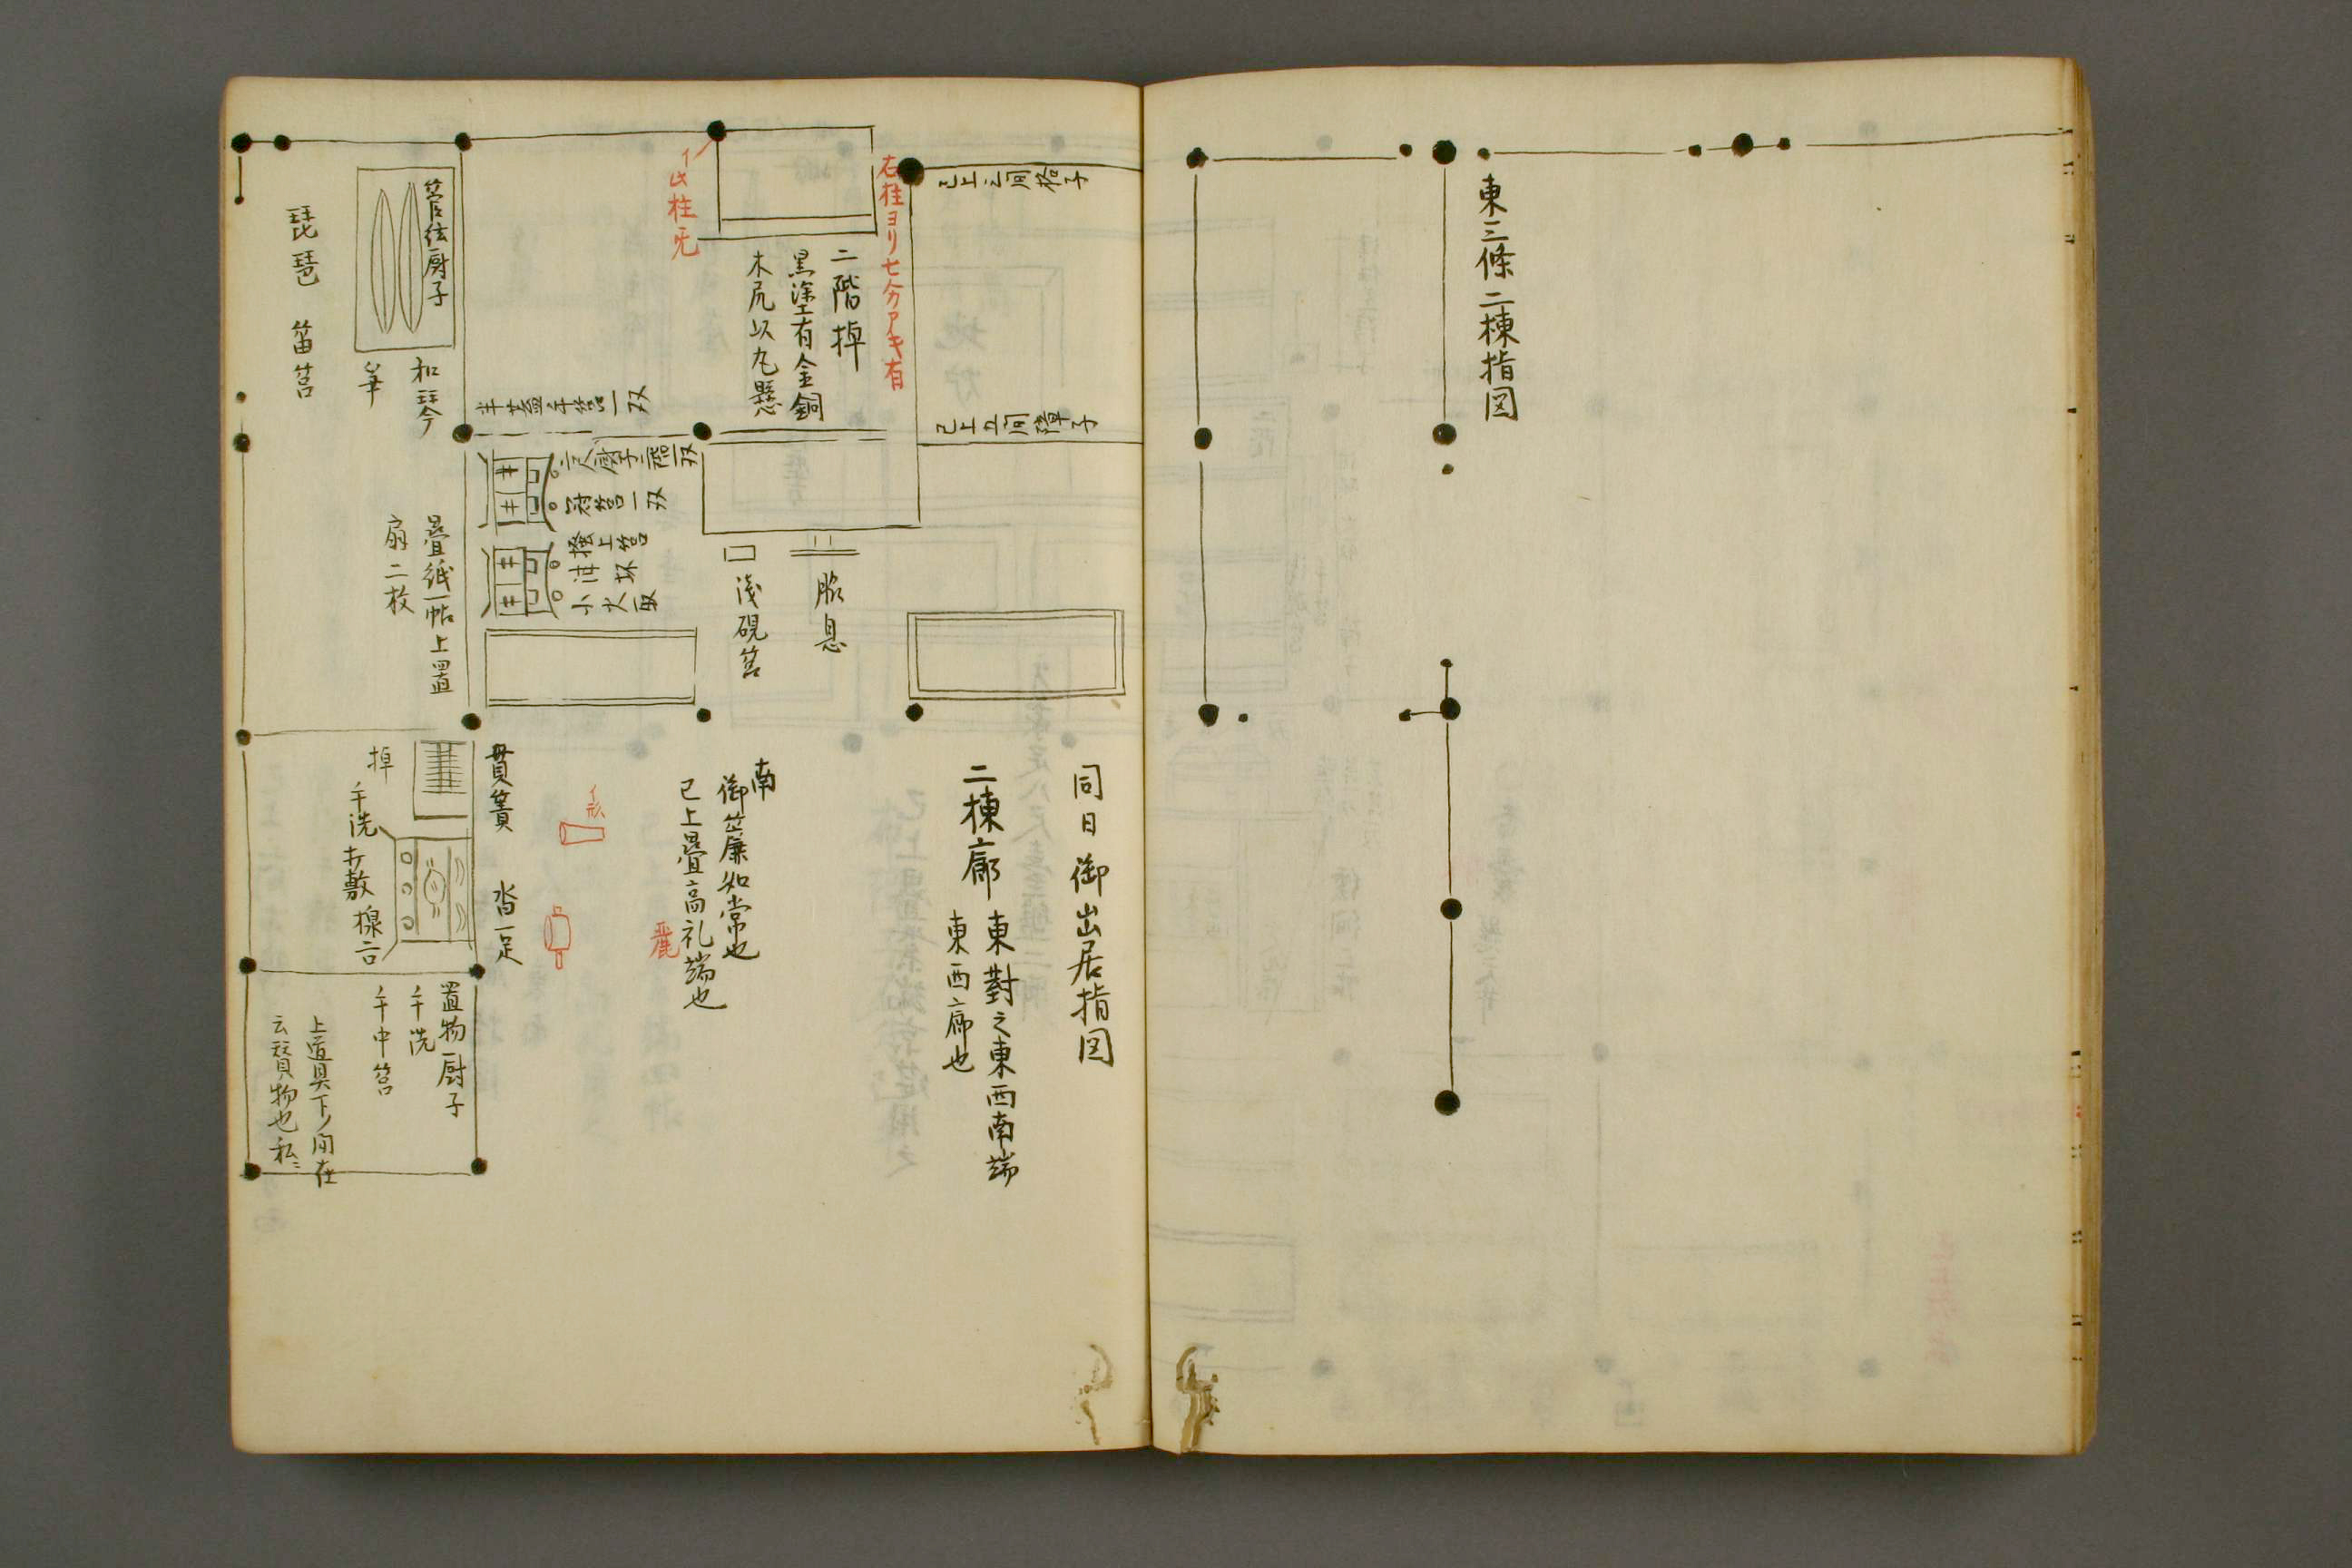 東三條二棟指図
同日御出居指図
二棟廊
東對之東西南端
東西廊也
南
御簾如常也
已上疊高礼端也
麗
已上三間格子
已上五間障子
右柱ヨリ七分アキ有
イ此柱旡
二階棹
黒塗有金銅
木尻以丸懸
脇息
淺硯筥
半蓋手筥一双
二階厨子一双
冠筥一双
掻上筥
泔坏
小火取
管絃厨子
和琴
箏
琵琶
笛筥
疊紙一帖上置
扇二枚
貫簀
沓一足
イ形
棹
手洗
打敷
置物厨子
手洗
手巾筥
上置具下ノ間在
云寳物也私ニ